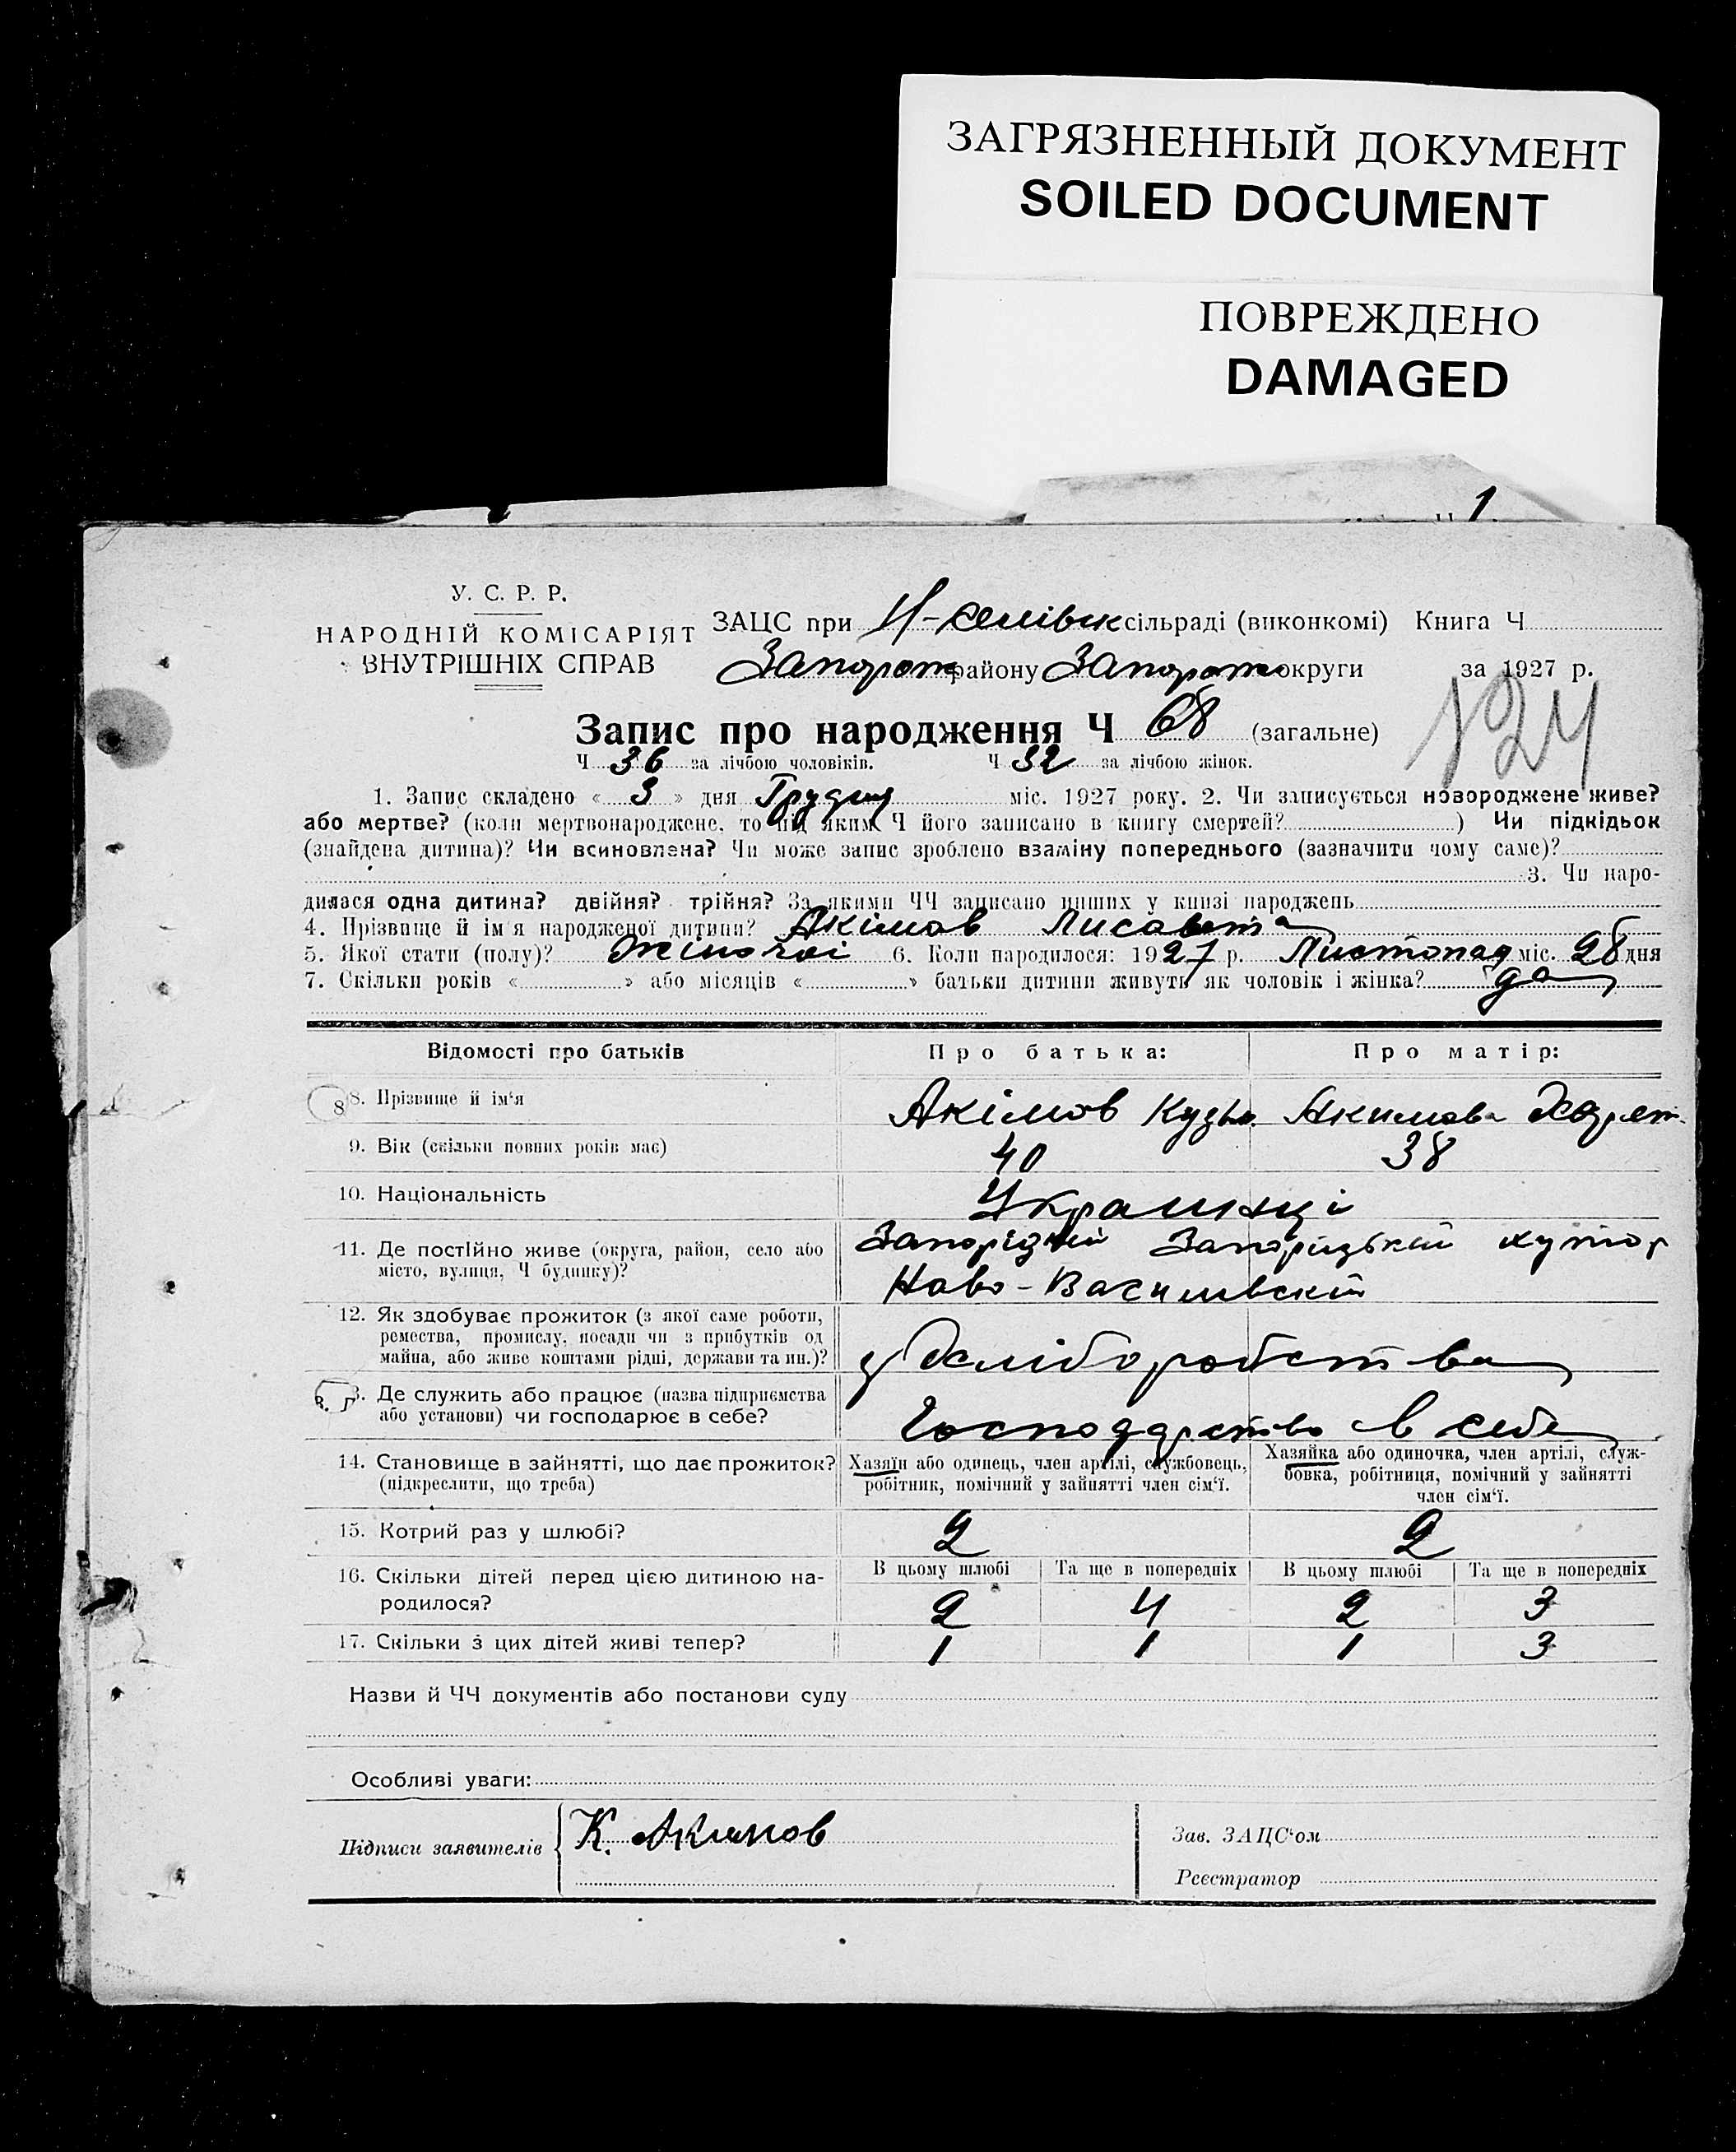 ЗАГРЯЗНЕННЫЙ ДОКУМЕНТ
SOILED DOCUMENT
ПОВРЕЖДЕНО
DAMAGED
1
У. С. Р. Р.
НАРОДНІЙ КОМІСАРІЯТ
ВНУТРІШНІХ СПРАВ
ЗАЦС при сільраді (виконкомі) Книга Ч
Запорож району Запорож округи за 1927 р.
124
Запис про народження Ч 68 (загальне)
Ч 36 за лічбою чоловіків. Ч 32 за лічбою жінок.
1. Запис складено « 3 » дня Грудня міс. 1927 року. 2. Чи записується новороджене живе?
або мертве? (коли мертвонароджене, то під яким Ч його записано в книгу смертей? ) Чи підкідьок
(знайдена дитина)? Чи всиновлена? Чи може запис зроблено взаміну попереднього (зазначити чому саме)?
3. Чи наро-
дилася одна дитина? двійня? трійня? За якими ЧЧ записано инших у книзі народжень
4. Прізвище й ім'я народженої дитини? Акімов Лисавета
5. Якої стати (полу)? Жіночої 6. Коли народилося: 1927 р. Листопад міс. 28 дня
7. Скільки років « » або місяців « » батьки дитини живуть як чоловік і жінка? да
Відомості про батьків Про батька: Про матір:
8 8. Прізвище й ім'я Акімов Кузьм. Акимова
9. Вік (скільки повних років має) 40 38
10. Національність Украинці
11. Де постійно живе (округа, район, село або
місто, вулиця, Ч будинку)?
Запоріжкий Запорізький хутор
Ново-Василивский
12. Як здобуває прожиток (з якої саме роботи,
ремества, промислу, посади чи з прибутків од
майна, або живе коштами рідні, держави та ин.)?
у Хліборобства
3. Де служить або працює (назва підприємства
або установи) чи господарює в себе?
Господарство в себе
14. Становище в зайнятті, що дає прожиток?
(підкреслити, що треба)
Хазяїн або одинець, член артілі, службовець,
робітник, помічний у зайнятті член сім'ї.
Хазяйка або одиночка, член артілі, служ-
бовка, робітниця, помічний у зайнятті
член сім'ї.
15. Котрий раз у шлюбі? 2 2
16. Скільки дітей перед цією дитиною на-
родилося?
В цьому шлюбі Та ще в попередніх В цьому шлюбі Та ще в попередніх
2 4 2 3
17. Скільки з цих дітей живі тепер? 1 1 1 3
Назви й ЧЧ документів або постанови суду
Особливі уваги:
Підписи заявителів К. Акимов
Зав. ЗАЦС'ом
Реєстратор